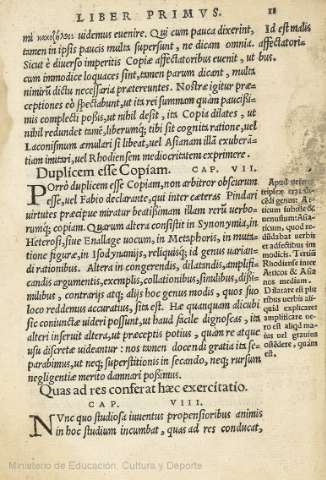 LIBER PRIMVS. 11
mì κακοζήλοις uidemus euenire. Qui cum pauca dixerint,
tamen in ipsis paucis multa supersunt, ne dicam omnia.
Sicut è diuerso imperitis Copiæ affectatoribus euenit, ut
cum immodice loquaces sint, tamen parum dicant, multa
nimirũ dictu necessaria prætereuntes. Nostræ igitur præ=
ceptiones eò spectabunt, ut ita rei summam quàm paucissi=
mis complecti possis, ut nihil desit, ita Copia dilates, ut
nihil redundet tamẽ, liberumq́; tibi sit cognita ratione, uel
Laconismum æmulari si libeat, uel Asianam illã exuberã=
tiam imitari, uel Rhodiensem mediocritatem exprimere.
Id est malis
affectatori=
bus.
Duplicem esse Copiam. CAP. VII.
POrrò duplicem esse Copiam, non arbitror obscurum
esse, uel Fabio declarante, qui inter cæteras Pindari
uirtutes præcipue miratur beatissimam illam rerũ uerbo=
rumq́; copiam. Quarum altera consistit in Synonymia, in
Heterosi, siue Enallage uocum, in Metaphoris, in muta=
tione figuræ, in Isodynamijs, reliquisq́; id genus uarian=
di rationibus. Altera in congerendis, dilatandis, amplifi=
candis argumentis, exemplis, collationibus, similibus, dissi=
milibus, contrarijs atq; alijs hoc genus modis, quos suo
loco reddemus accuratius, sita est. Hæ quanquam alicubi
sic coniunctæ uideri possunt, ut haud facile dignoscas, ita
alteri inseruit altera, ut præceptis potius, quàm re atque
usu discretæ uideantur: nos tamen docendi gratia ita se=
parabimus, ut neq; superstitionis in secando, neq; rursum
negligentiæ merito damnari possimus.
triplex
dicẽdi genus: At=
ticum
Asia=
ticum, quod
bat uerbis
et adfectibus im
modicis. Tertiũ
Rhodiensi inter
Atticos & Asia
nos medium.
Dilatare est plu
ribus uerbis ali=
quid explicare:
amplificare ue=
ro est aliqd ma=
ius uel grauius
ostẽdere, quàm
est.
Quas ad res conferat hæc exercitatio.
CAP. VIII.
NVnc quo studiosa iuuentus propensioribus animis
in hoc studium incumbat, quas ad res conducat,
Ministerio de Educación, Cultura y Deporte